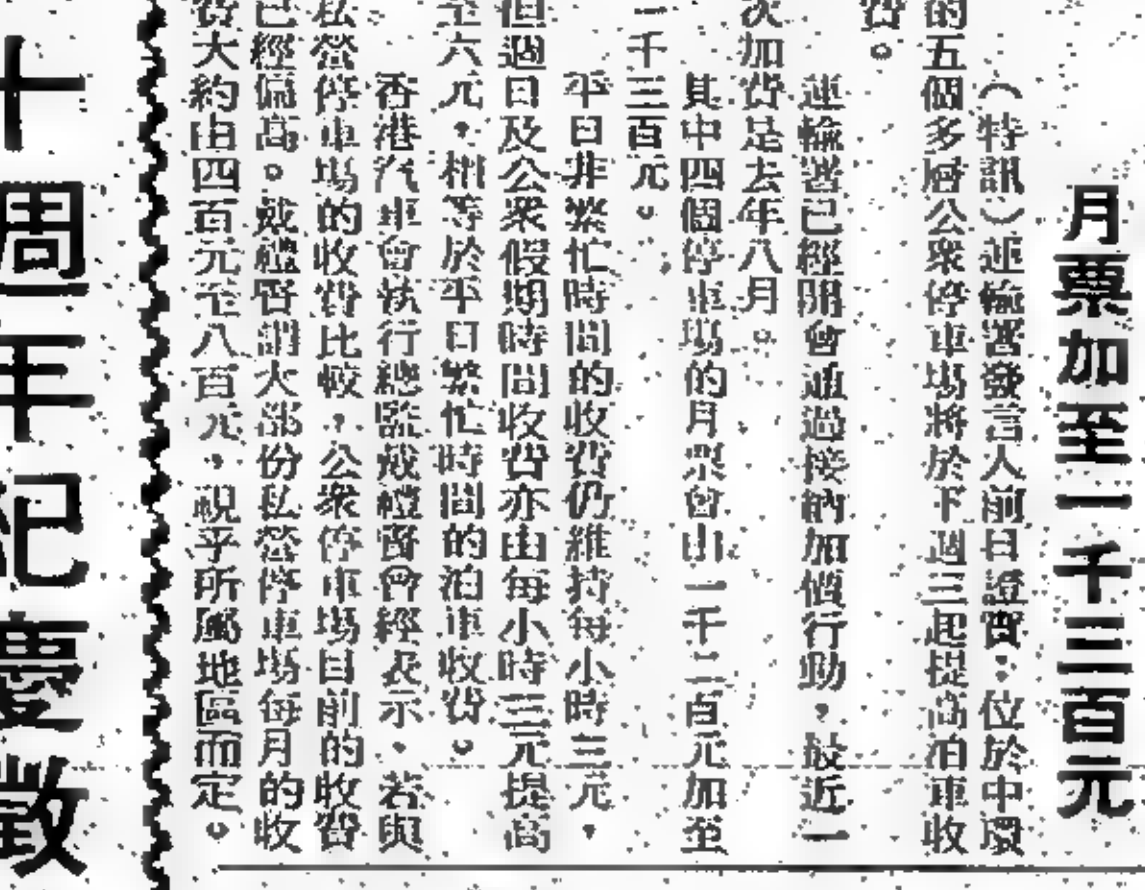 月票加至一千三百元
（特訊）運輸署發言人前日證實：位於中環
的五個多層公衆停車場將於下週三起提高泊車收
費。
運輸署已經開會通過接納加價行動，最近一
次加費是去年八月。
其中四個停車場的月票會由一千二百元加至
一千三百元。
平日非繁忙時間的收費仍維持每小時三元，
但週日及公衆假期時間收費亦由每小時三元提高
至六元，相等於平日繁忙時間的泊車收費。
香港汽車會執行總監戴禮賢曾經表示，若與
私營停車場的收費比較，公衆停車場目前的收費
已經偏高。戴禮賢謂大部份私營停車場每月的收
費大約由四百元至八百元，視乎所屬地區而定。
十週年紀慶徵